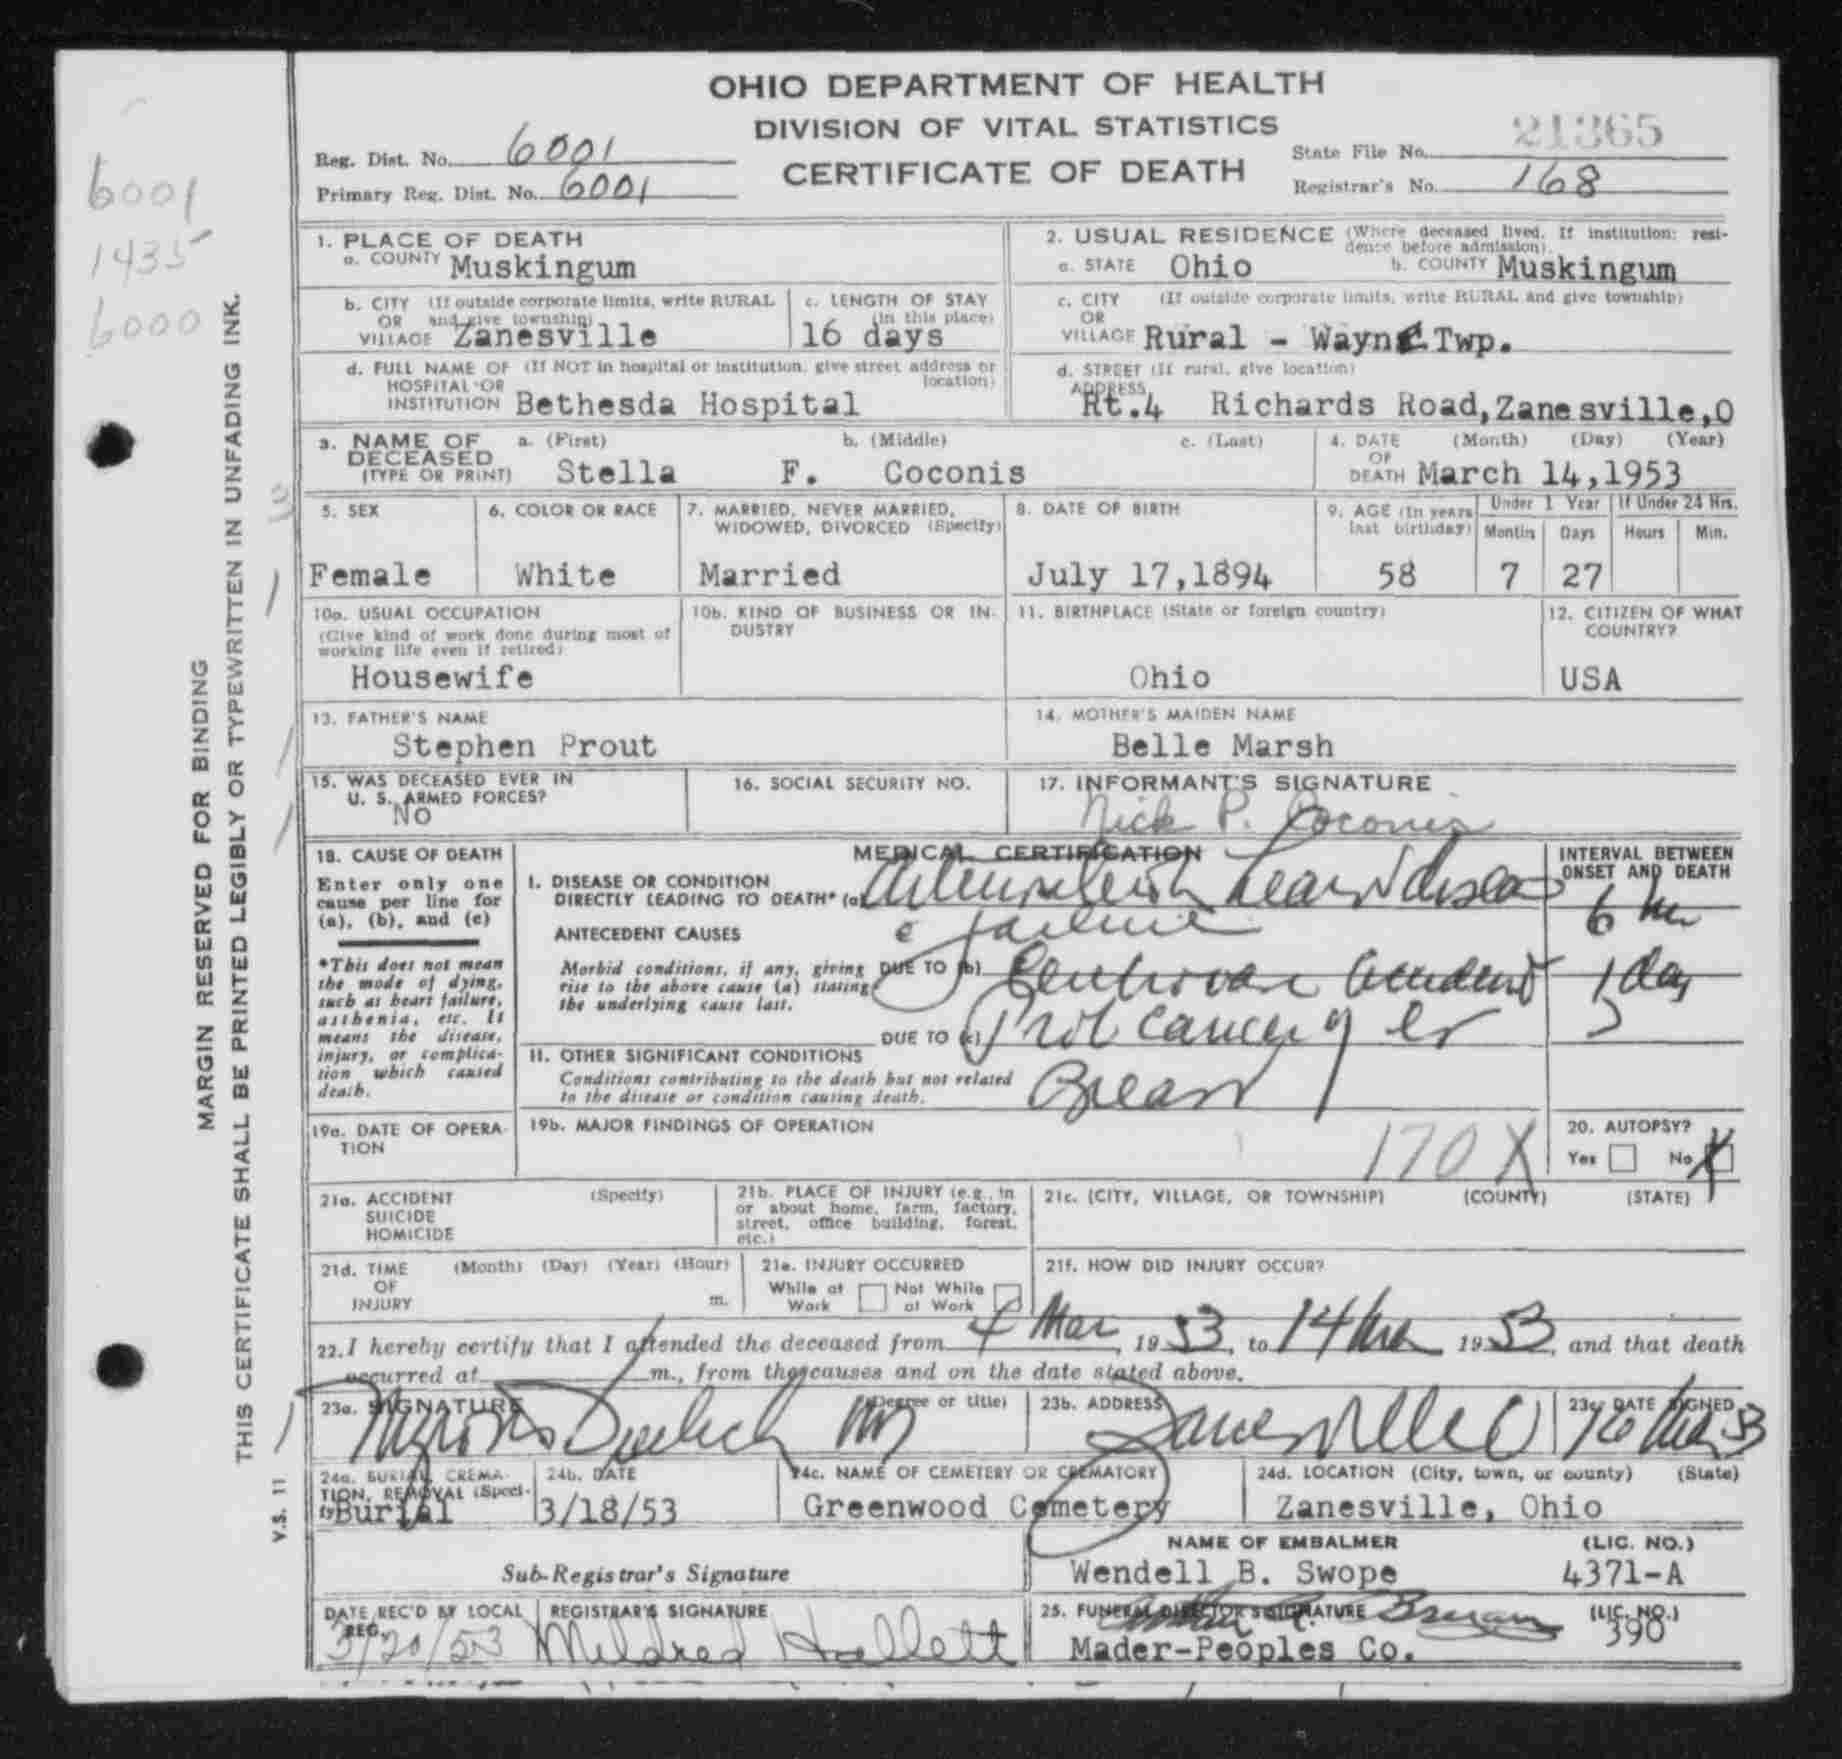 OHIO DEPARTMENT OF HEALTH
DIVISION OF VITAL STATISTICS
CERTIFICATE OF DEATH
Reg. Dist. No. 6001
Primary Reg. Dist. No. 6001
State File No. 21365
Registrar's No. 168
6001
1435
6000
MARGIN RESERVED FOR BINDING
THIS CERTIFICATE SHALL BE PRINTED LEGIBLY OR TYPEWRITTEN IN UNFADING INK.
V.S. 11
1. PLACE OF DEATH
a. COUNTY Muskingum
2. USUAL RESIDENCE (Where deceased lived. If institution: resi-
dence before admission).
a. STATE Ohio b. COUNTY Muskingum
b. CITY (If outside corporate limits, write RURAL
OR and give township)
VILLAGE Zanesville
c. LENGTH OF STAY
(in this place)
16 days
c. CITY (If outside corporate limits, write RURAL and give township)
OR
VILLAGE Rural - Wayne Twp.
d. FULL NAME OF (If NOT in hospital or institution, give street address or
HOSPITAL OR location)
INSTITUTION Bethesda Hospital
d. STREET (If rural, give location)
ADDRESS
Rt.4 Richards Road, Zanesville, O
3. NAME OF a. (First) b. (Middle) c. (Last)
DECEASED
(TYPE OR PRINT) Stella F. Coconis
4. DATE (Month) (Day) (Year)
OF
DEATH March 14,1953
5. SEX
Female
6. COLOR OR RACE
White
7. MARRIED, NEVER MARRIED,
WIDOWED, DIVORCED (Specify)
Married
8. DATE OF BIRTH
July 17,1894
9. AGE (In years
last birthday)
58
Under 1 Year
Months Days
7 27
If Under 24 Hrs.
Hours Min.
10a. USUAL OCCUPATION
(Give kind of work done during most of
working life even if retired)
Housewife
10b. KIND OF BUSINESS OR IN-
DUSTRY
11. BIRTHPLACE (State or foreign country)
Ohio
12. CITIZEN OF WHAT
COUNTRY?
USA
13. FATHER'S NAME
Stephen Prout
14. MOTHER'S MAIDEN NAME
Belle Marsh
15. WAS DECEASED EVER IN
U. S. ARMED FORCES?
No
16. SOCIAL SECURITY NO.
17. INFORMANT'S SIGNATURE
Nick P. Coconis
18. CAUSE OF DEATH
Enter only one
cause per line for
(a), (b), and (c)
*This does not mean
the mode of dying,
such as heart failure,
asthenia, etc. It
means the disease,
injury, or complica-
tion which caused
death.
MEDICAL CERTIFICATION
I. DISEASE OR CONDITION
DIRECTLY LEADING TO DEATH* (a) heart disease
c failure
ANTECEDENT CAUSES
Morbid conditions, if any, giving
rise to the above cause (a) stating
the underlying cause last.
DUE TO (b)
DUE TO (c) cancer of
Breast
II. OTHER SIGNIFICANT CONDITIONS
Conditions contributing to the death but not related
to the disease or condition causing death.
INTERVAL BETWEEN
ONSET AND DEATH
6
1 day
19a. DATE OF OPERA-
TION
19b. MAJOR FINDINGS OF OPERATION
170 X
20. AUTOPSY?
Yes No X
21a. ACCIDENT (Specify)
SUICIDE
HOMICIDE
21b. PLACE OF INJURY (e.g., in
or about home, farm, factory,
street, office building, forest,
etc.)
21c. (CITY, VILLAGE, OR TOWNSHIP) (COUNTY) (STATE)
21d. TIME (Month) (Day) (Year) (Hour)
OF
INJURY m.
21e. INJURY OCCURRED
While at Not While
Work at Work
21f. HOW DID INJURY OCCUR?
22. I hereby certify that I attended the deceased from 4 Mar, 1953, to 14 Mar 1953, and that death
occurred at m., from the causes and on the date stated above.
23a. SIGNATURE (Degree or title)
23b. ADDRESS
Zanesville O
23c. DATE SIGNED
16 Mar 53
24a. BURIAL, CREMA-
TION, REMOVAL (Speci-
fy) Burial
24b. DATE
3/18/53
24c. NAME OF CEMETERY OR CREMATORY
Greenwood Cemetery
24d. LOCATION (City, town, or county) (State)
Zanesville, Ohio
Sub-Registrar's Signature
NAME OF EMBALMER (LIC. NO.)
Wendell B. Swope 4371-A
DATE REC'D BY LOCAL
REG.
3/20/53
REGISTRAR'S SIGNATURE
Mildred Hallett
25. FUNERAL DIRECTOR'S SIGNATURE (LIC. NO.)
390
Mader-Peoples Co.